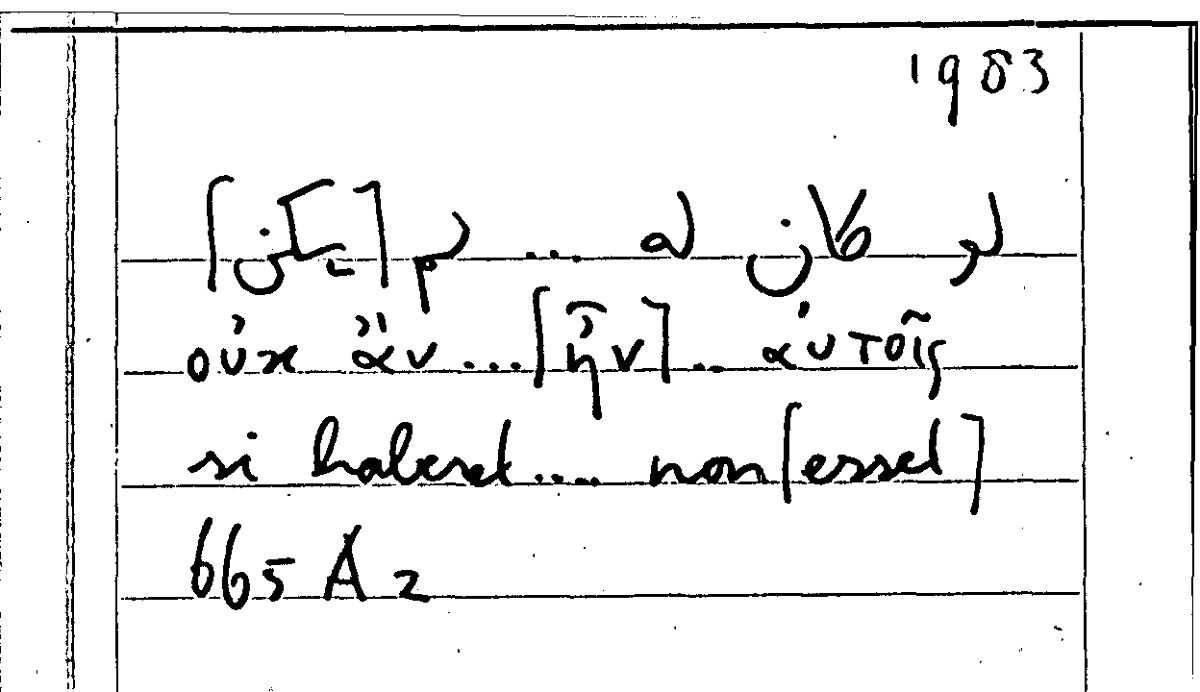 1983
لو كان له ... لم [يكن]
οὐκ ἂν ... [ἦν] .. αὐτοῖς
si haberet .... non [esset]
665 A 2